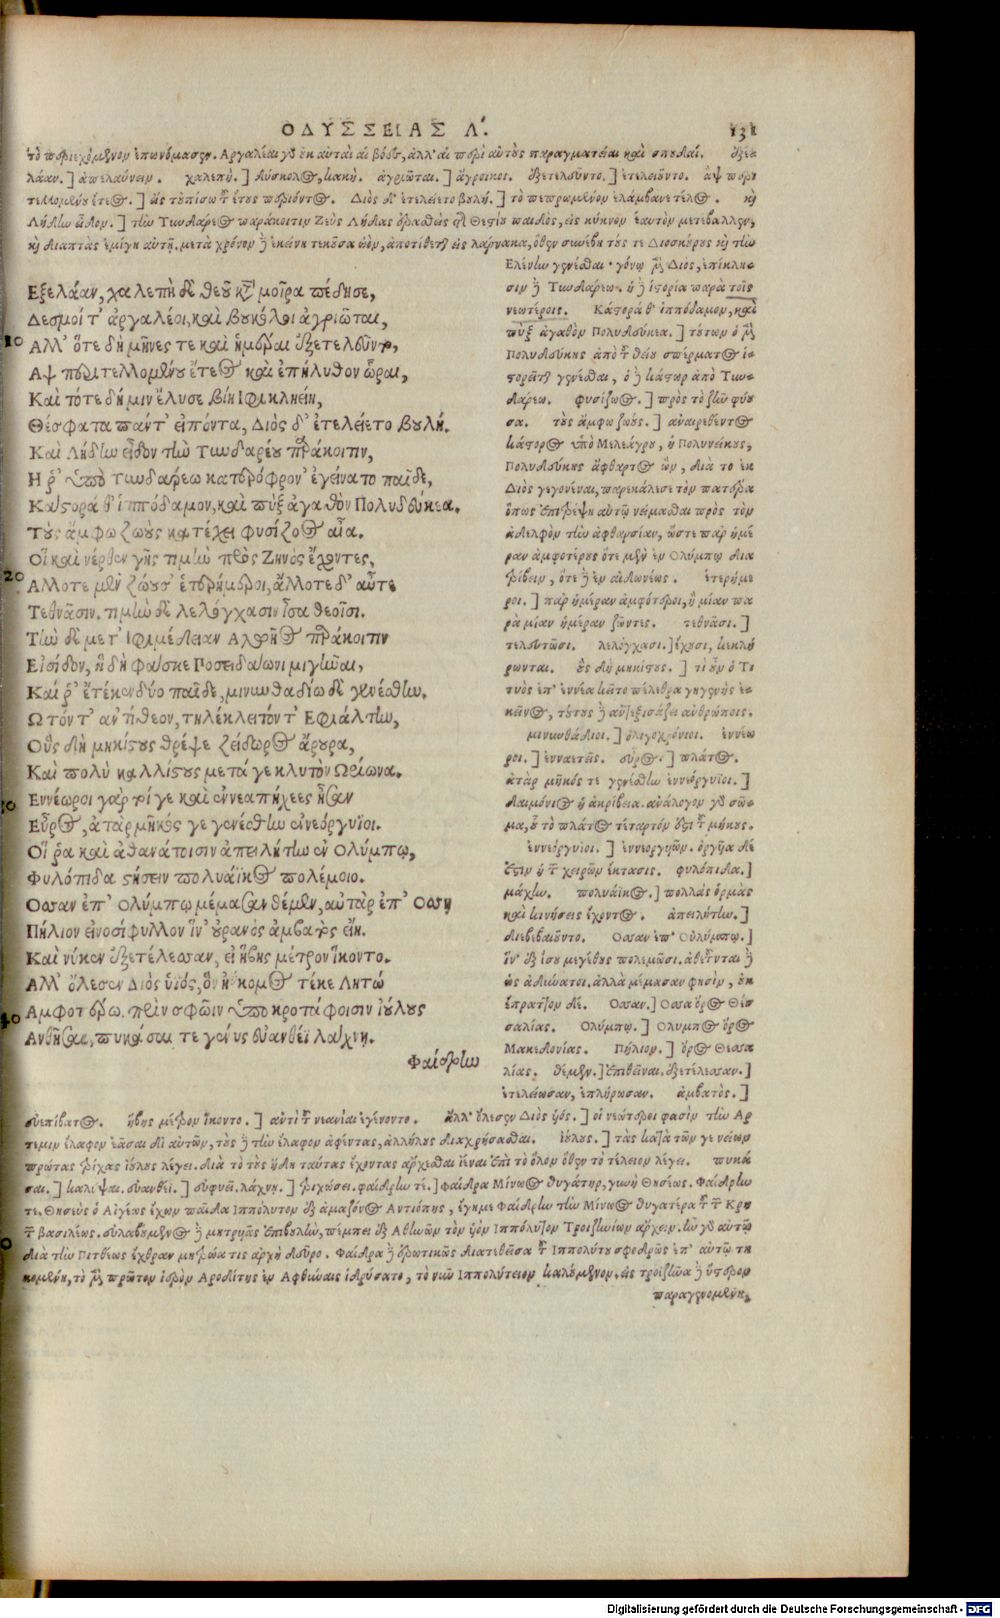 ΟΔΥΣΣΕΙΑΣ Λ. 131
τὸ περιεχόμενον ἐπωνόμασεν. Αργαλέαι γὰρ οὐκ αὐταὶ αἱ βόες, ἀλλ' αἱ περὶ αὐτοὺς πραγματεῖαι καὶ σπουδαί. ἐξε-
λάαν.] ἀπελαύνειν. χαλεπή.] δύσκολος, κακή. ἀγριῶται.] ἄγροικοι. ἐξετελεῦντο.] ἐτελειοῦντο. ἂψ περι
τελλομένου ἔτεος.] εἰς τὐπίσω τοῦ ἔτους περιόντος. Διὸς δ' ἐτελείετο βουλή.] τὸ πεπρωμένον ἐλάμβανε τέλος. καὶ
Λήδην εἶδον.] τὴν Τυνδάρεω παράκοιτιν Ζεὺς Λήδας ἐρασθεὶς τῆς Θεστίου παιδὸς, εἰς κύκνον ἑαυτὸν μετέβαλλεν,
καὶ διαπτὰς ἐμίγη αὐτῇ. μετὰ χρόνον δὲ ἐκείνη τεκοῦσα ὠὸν, ἀποτίθεται εἰς λάρνακα, ὅθεν συνέβη τούς τε Διοσκούρους καὶ τὴν
Εξελάαν, χαλεπὴ δὲ θεοῦ κατὰ μοῖρα πέδησε,
Δεσμοί τ' ἀργαλέοι, καὶ βουκόλοι ἀγριῶται,
10 Αλλ' ὅτε δὴ μῆνες τε καὶ ἡμέραι ἐξετελεῦντο,
Αψ περιτελλομένου ἔτεος καὶ ἐπήλυθον ὧραι,
Καὶ τότε δή μιν ἔλυσε βίη Ιφικληείη,
Θέσφατα πάντ' εἰπόντα, Διὸς δ' ἐτελείετο βουλή.
Καὶ Λήδην εἶδον τὴν Τυνδαρέου παράκοιτιν,
Η ῥ' ὑπὸ Τυνδαρέω κατερόφρον' ἐγείνατο παῖδε,
Κάστορά θ' ἱππόδαμον, καὶ πὺξ ἀγαθὸν Πολυδεύκεα.
Τοὺς ἄμφω ζωοὺς κατέχει φυσίζοος αἶα.
Οἳ καὶ νέρθεν γῆς τιμὴν πρὸς Ζηνὸς ἔχοντες,
20 Αλλοτε μὲν ζώουσ' ἑτερήμεροι, ἄλλοτε δ' αὖτε
Τεθνᾶσιν. τιμὴν δὲ λελόγχασιν ἶσα θεοῖσι.
Τὴν δὲ μετ' Ιφιμέδειαν Αλωῆος παράκοιτιν
Εἰσίδον, ἣ δὴ φάσκε Ποσειδάωνι μιγῆναι,
Καί ῥ' ἔτεκεν δύο παῖδε, μινυνθαδίω δὲ γενέσθην.
Ωτόν τ' ἀντίθεον, τηλέκλειτόν τ' Εφιάλτην,
Οὓς δὴ μηκίστους θρέψε ζείδωρος ἄρουρα,
Καὶ πολὺ καλλίστους μετά γε κλυτὸν Ωρίωνα.
30 Εννέωροι γὰρ τοί γε καὶ ἐννεαπήχεες ἦσαν
Εὖρος, ἀτὰρ μῆκός γε γενέσθην ἐννεόργυιοι.
Οἵ ῥα καὶ ἀθανάτοισιν ἀπειλήτην ἐν Ολύμπῳ,
Φυλόπιδα στήσειν πολυάϊκος πολέμοιο.
Οσσαν ἐπ' Ολύμπῳ μέμασαν θέμεν, αὐτὰρ ἐπ' Οσσῃ
Πήλιον εἰνοσίφυλλον ἵν' οὐρανὸς ἀμβατὸς εἴη.
Καὶ νύ κεν ἐξετέλεσσαν, εἰ ἥβης μέτρον ἵκοντο.
Αλλ' ὄλεσεν Διὸς υἱός, ὃν ἠΰκομος τέκε Λητώ
40 Αμφοτέρω. πρίν σφῶϊν ὑπὸ κροτάφοισιν ἰούλους
Ανθῆσαι, πυκάσαι τε γένυς εὐανθέϊ λάχνῃ.
Φαίδρην
Ελένην γενέσθαι. γόνῳ μὲν Διὸς, ἐπίκλη-
σιν δὲ Τυνδάρεω. ἡ δὲ ἱστορία παρὰ τοῖς
νεωτέροις. Κάστορά θ' ἱππόδαμον, καὶ
πὺξ ἀγαθὸν Πολυδεύκεα.] τούτων ὁ μὲν
Πολυδεύκης ἀπὸ τοῦ θεοῦ σπέρματος ἱ-
στορεῖται γενέσθαι, ὁ δὲ κάστωρ ἀπὸ Τυν-
δάρεω. φυσίζοος.] πρὸς τὸ ζῆν φύου
σα. τοὺς ἄμφω ζωούς.] ἀναιρεθέντος
κάστορος ὑπὸ Μελεάγρου, ἢ Πολυνείκους,
Πολυδεύκης ἄφθαρτος ὢν, διὰ τὸ ἐκ
Διὸς γεγονέναι, παρεκάλεσε τὸν πατέρα
ὅπως ἐπιτρέψῃ αὐτῷ νείμασθαι πρὸς τὸν
ἀδελφὸν τὴν ἀφθαρσίαν, ὥστε παρ' ἡμέ
ραν ἀμφοτέρους ὁτὲ μὲν ἐν Ολύμπῳ δια
τρίβειν, ὁτὲ δὲ ἐν αἰδωνέως. ἑτερήμε
ροι.] παρ' ἡμέραν ἀμφότεροι, ἢ μίαν πα
ρὰ μίαν ἡμέραν ζῶντες. τεθνᾶσι.]
τελευτῶσι. λελόγχασι.] ἔχουσι, κεκλή
ρωνται. οὓς δὴ μηκίστους.] τί οὖν ὁ Τι
τυὸς ἐπ' ἐννέα κεῖτο πέλεθρα γηγενὴς ἐ-
κεῖνος, τούτους δὲ ἀντεξετάζει ἀνθρώποις.
μινυνθάδιοι.] ὀλιγοχρόνιοι. ἐννέω
ροι.] ἐνναετεῖς. εὖρος.] πλάτος.
ἀτὰρ μῆκός τε γενέσθην ἐννεόργυιοι.]
δαιμόνιος ἡ ἀκρίβεια. ἀνάλογον γὰρ σῶ-
μα, οὗ τὸ πλάτος τέταρτόν ἐστι τοῦ μήκους.
ἐννεόργυιοι.] ἐννεοργυῶν. ὀργυιὰ δέ
ἐστιν ἡ τῶν χειρῶν ἔκτασις. φυλόπιδα.]
μάχην. πολυάϊκος.] πολλὰς ὁρμὰς
καὶ κινήσεις ἔχοντος. ἀπειλήτην.]
διεβεβαιοῦντο. Οσσαν ἐπ' Οὐλύμπῳ.]
ἵν' ἐξ ἴσου μεγέθους πολεμῶσι. ἀθετοῦνται δὲ
ὡς ἀδύνατοι. ἀλλὰ μέμασαν φησὶν, οὐκ
ἔπραττον δέ. Οσσαν.] Οσσα ὄρος Θεσ
σαλίας. Ολύμπῳ.] Ολυμπος ὄρος
Μακεδονίας. Πήλιον.] ὄρος Θεσσα
λίας. θέμεν.] ἐπιθεῖναι. ἐξετέλεσσαν.]
ἐτελείωσαν, ἐπλήρωσαν. ἀμβατός.]
εὐεπίβατος. ἥβης μέτρον ἵκοντο.] ἀντὶ τοῦ νεανίαι ἐγένοντο. ἀλλ' ὄλεσεν Διὸς υἱός.] οἱ νεώτεροι φασὶν τὴν Αρ
τεμιν ἔλαφον ἐᾶσαι δι' αὐτῶν, τοὺς δὲ τὴν ἔλαφον ἀφέντας, ἀλλήλους διαχρήσασθαι. ἰούλους.] τὰς κατὰ τῶν γενείων
πρώτας τρίχας ἰούλους λέγει. διὰ τὸ τοὺς ἤδη ταύτας ἔχοντας ἄρχεσθαι ἰέναι ἐπὶ τὸ ὅλον ὅθεν τὸ τέλειον λέγει. πυκά
σαι.] καλύψαι. εὐανθεῖ.] εὐφυεῖ. λάχνῃ.] τριχώσει. φαίδρην τε.] Φαίδρα Μίνωος θυγάτηρ, γυνὴ Θησέως. Φαίδρην
τε. Θησεὺς ὁ Αἰγέως ἔχων παῖδα Ιππόλυτον ἐξ ἀμαζόνος Αντιόπης, ἔγημε Φαίδρην τὴν Μίνωος θυγατέρα τοῦ τῶν Κρη
τῶν βασιλέως. εὐλαβούμενος δὲ μητρυιᾶς ἐπιβουλὴν, πέμπει ἐξ Αθηνῶν τὸν υἱὸν Ιππόλυτον Τροιζηνίων ἄρχειν. ἦν γὰρ αὐτῷ
διὰ τὴν Πιτθέως ἔχθραν μητρῴα τις ἀρχὴ δεῦρο. Φαίδρα δὲ ἐρωτικῶς διατεθεῖσα τοῦ Ιππολύτου σφοδρῶς ἐπ' αὐτῷ τη
κομένη, τὸ μὲν πρῶτον ἱερὸν Αφροδίτης ἐν Αθήναις ἱδρύσατο, τὸ νῦν Ιππολύτειον καλούμενον. εἰς τροιζῆνα δὲ ὕστερον
παραγενομένη,
Digitalisierung gefördert durch die Deutsche Forschungsgemeinschaft - DFG